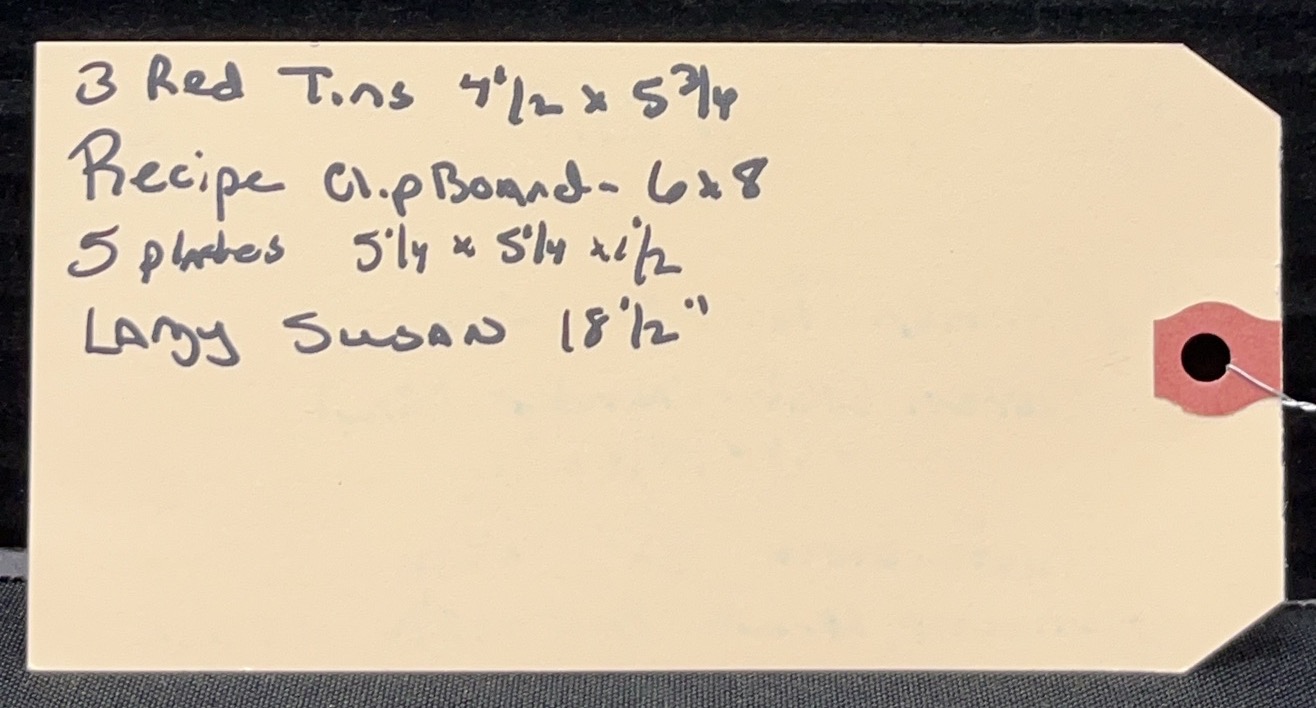 3 Red Tins 4 1/2 x 5 3/4
Recipe ClipBoard - 6 x 8
5 plates 5 1/4 x 5 1/4 x 1 1/2
LAzy SusAN 18 1/2"